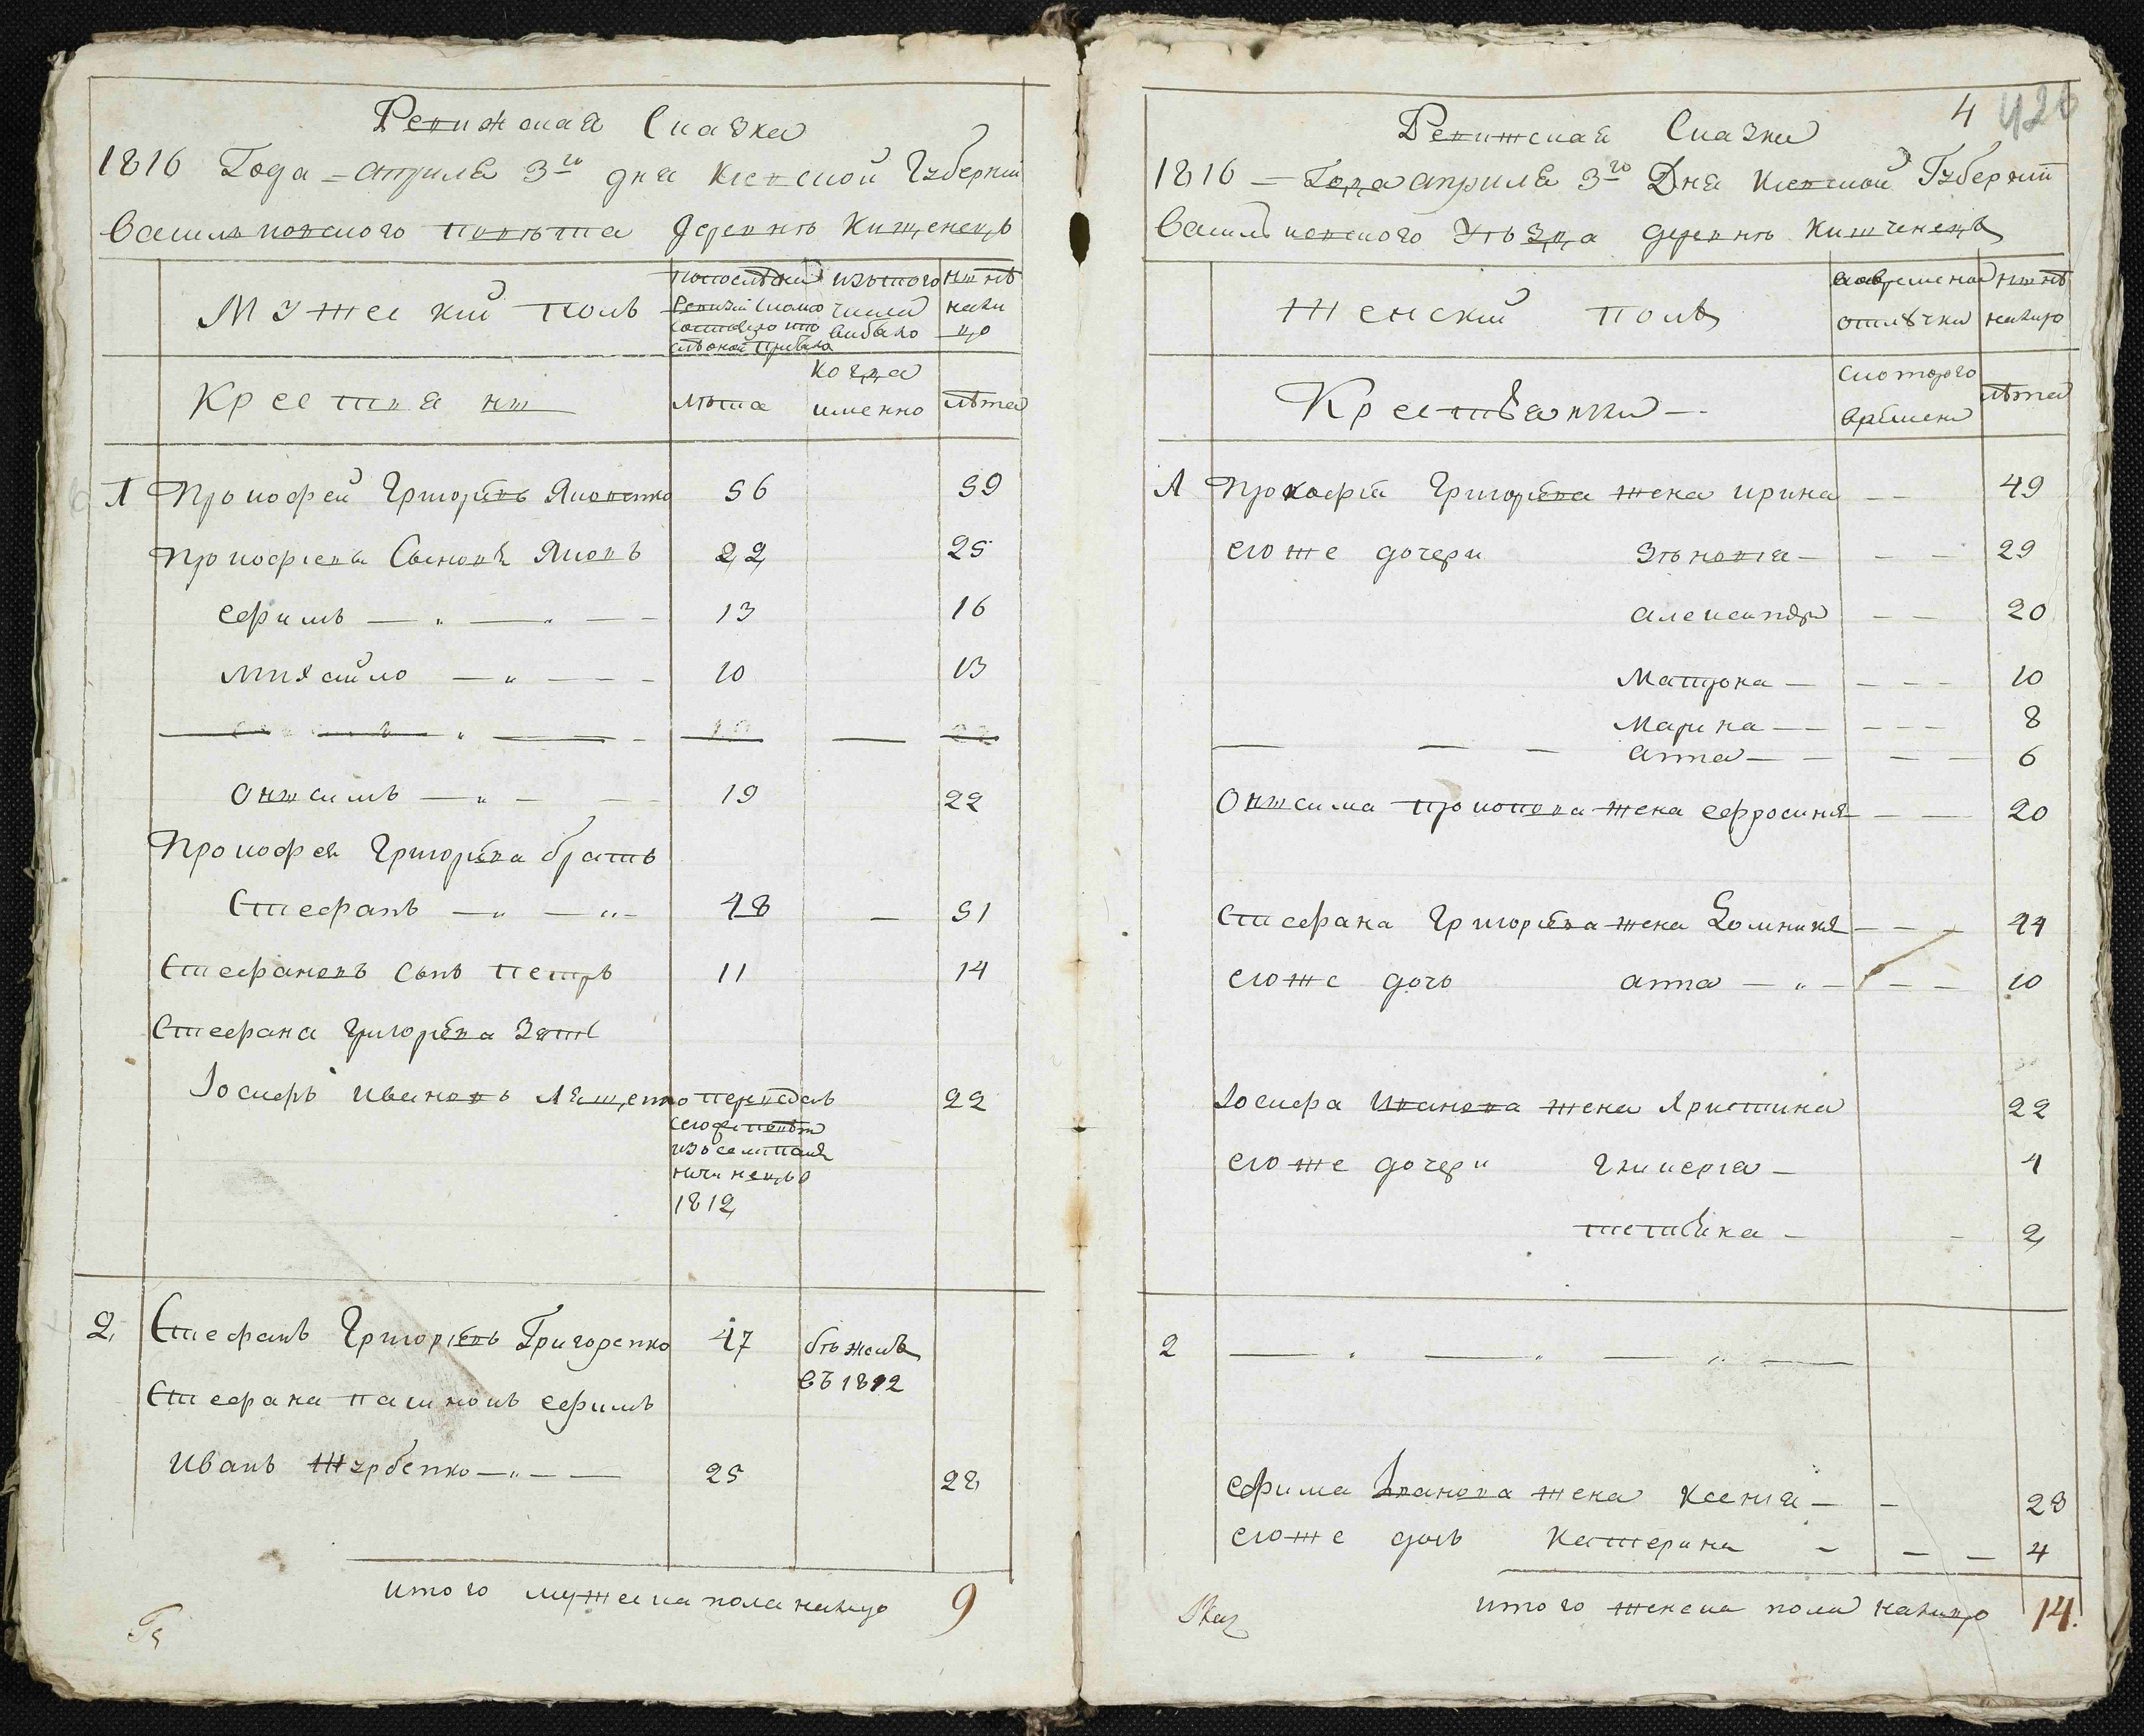 Ревижская Сказка
1816 Года – апрѣля 3го дня Киевской Губернїи
Васильковского повѣта деревнѣ Кищенецъ
Мужеский полъ
попоследней ревизїи состояло
изътого числа выбыло
нынѣ налицо
Крестяаны
лѣта
когда именно
лѣта
1 Прокофей Григорїевъ Яковенко 56 59
Прокофїевы Сыновя Яковъ 22 25
Ефимъ — „ — „ — — 13 16
Михайло — „ — — — 10 13
Онисимъ — „ — — 19 22
Прокофея Григорїева братъ
Стефанъ — „ — „ — 48 — 51
Стефановъ Сынъ Петръ 11 14
Стефана Григорїева Зять
Іосифъ Ивановъ Лященко 22
1812
2 Стефанъ Григорїевъ Григоренко 47 бѣжалъ
въ 1812
Стефана пасинокъ Ефимъ
Иванъ Щербенко — „ — — 25 28
итого мужеска пола налицо 9
4 426
Ревижская Сказка
1816 – Года апрѣля 3го Дня Киевской Губернїи
Васильковского Уѣзда деревнѣ Кищенецъ
Женский полъ
вовременой отлучки
нынѣ налицо
Крестьянки —
скоторого времени
лѣта
1 Прокофїя Григорїева жена ирина — — 49
егоже дочери Зѣновїя — — — 29
александра — — 20
Матрона — — — — 10
Марина — — — — — 8
— — — анна — — — — 6
Онисима Прокопова жена ефросиня — — 20
Стефана Григорїева жена Домникия — — — 44
егоже дочь анна — „ — — — 10
Іосифа Иванова жена Христина 22
егоже дочери гликерїя — 4
тетянка — — 2
2 — . — „ — „ —
ефима Іванова жена Ксенїя — — 28
егоже дочь Катерина — — — 4
итого женска пола налицо 14.